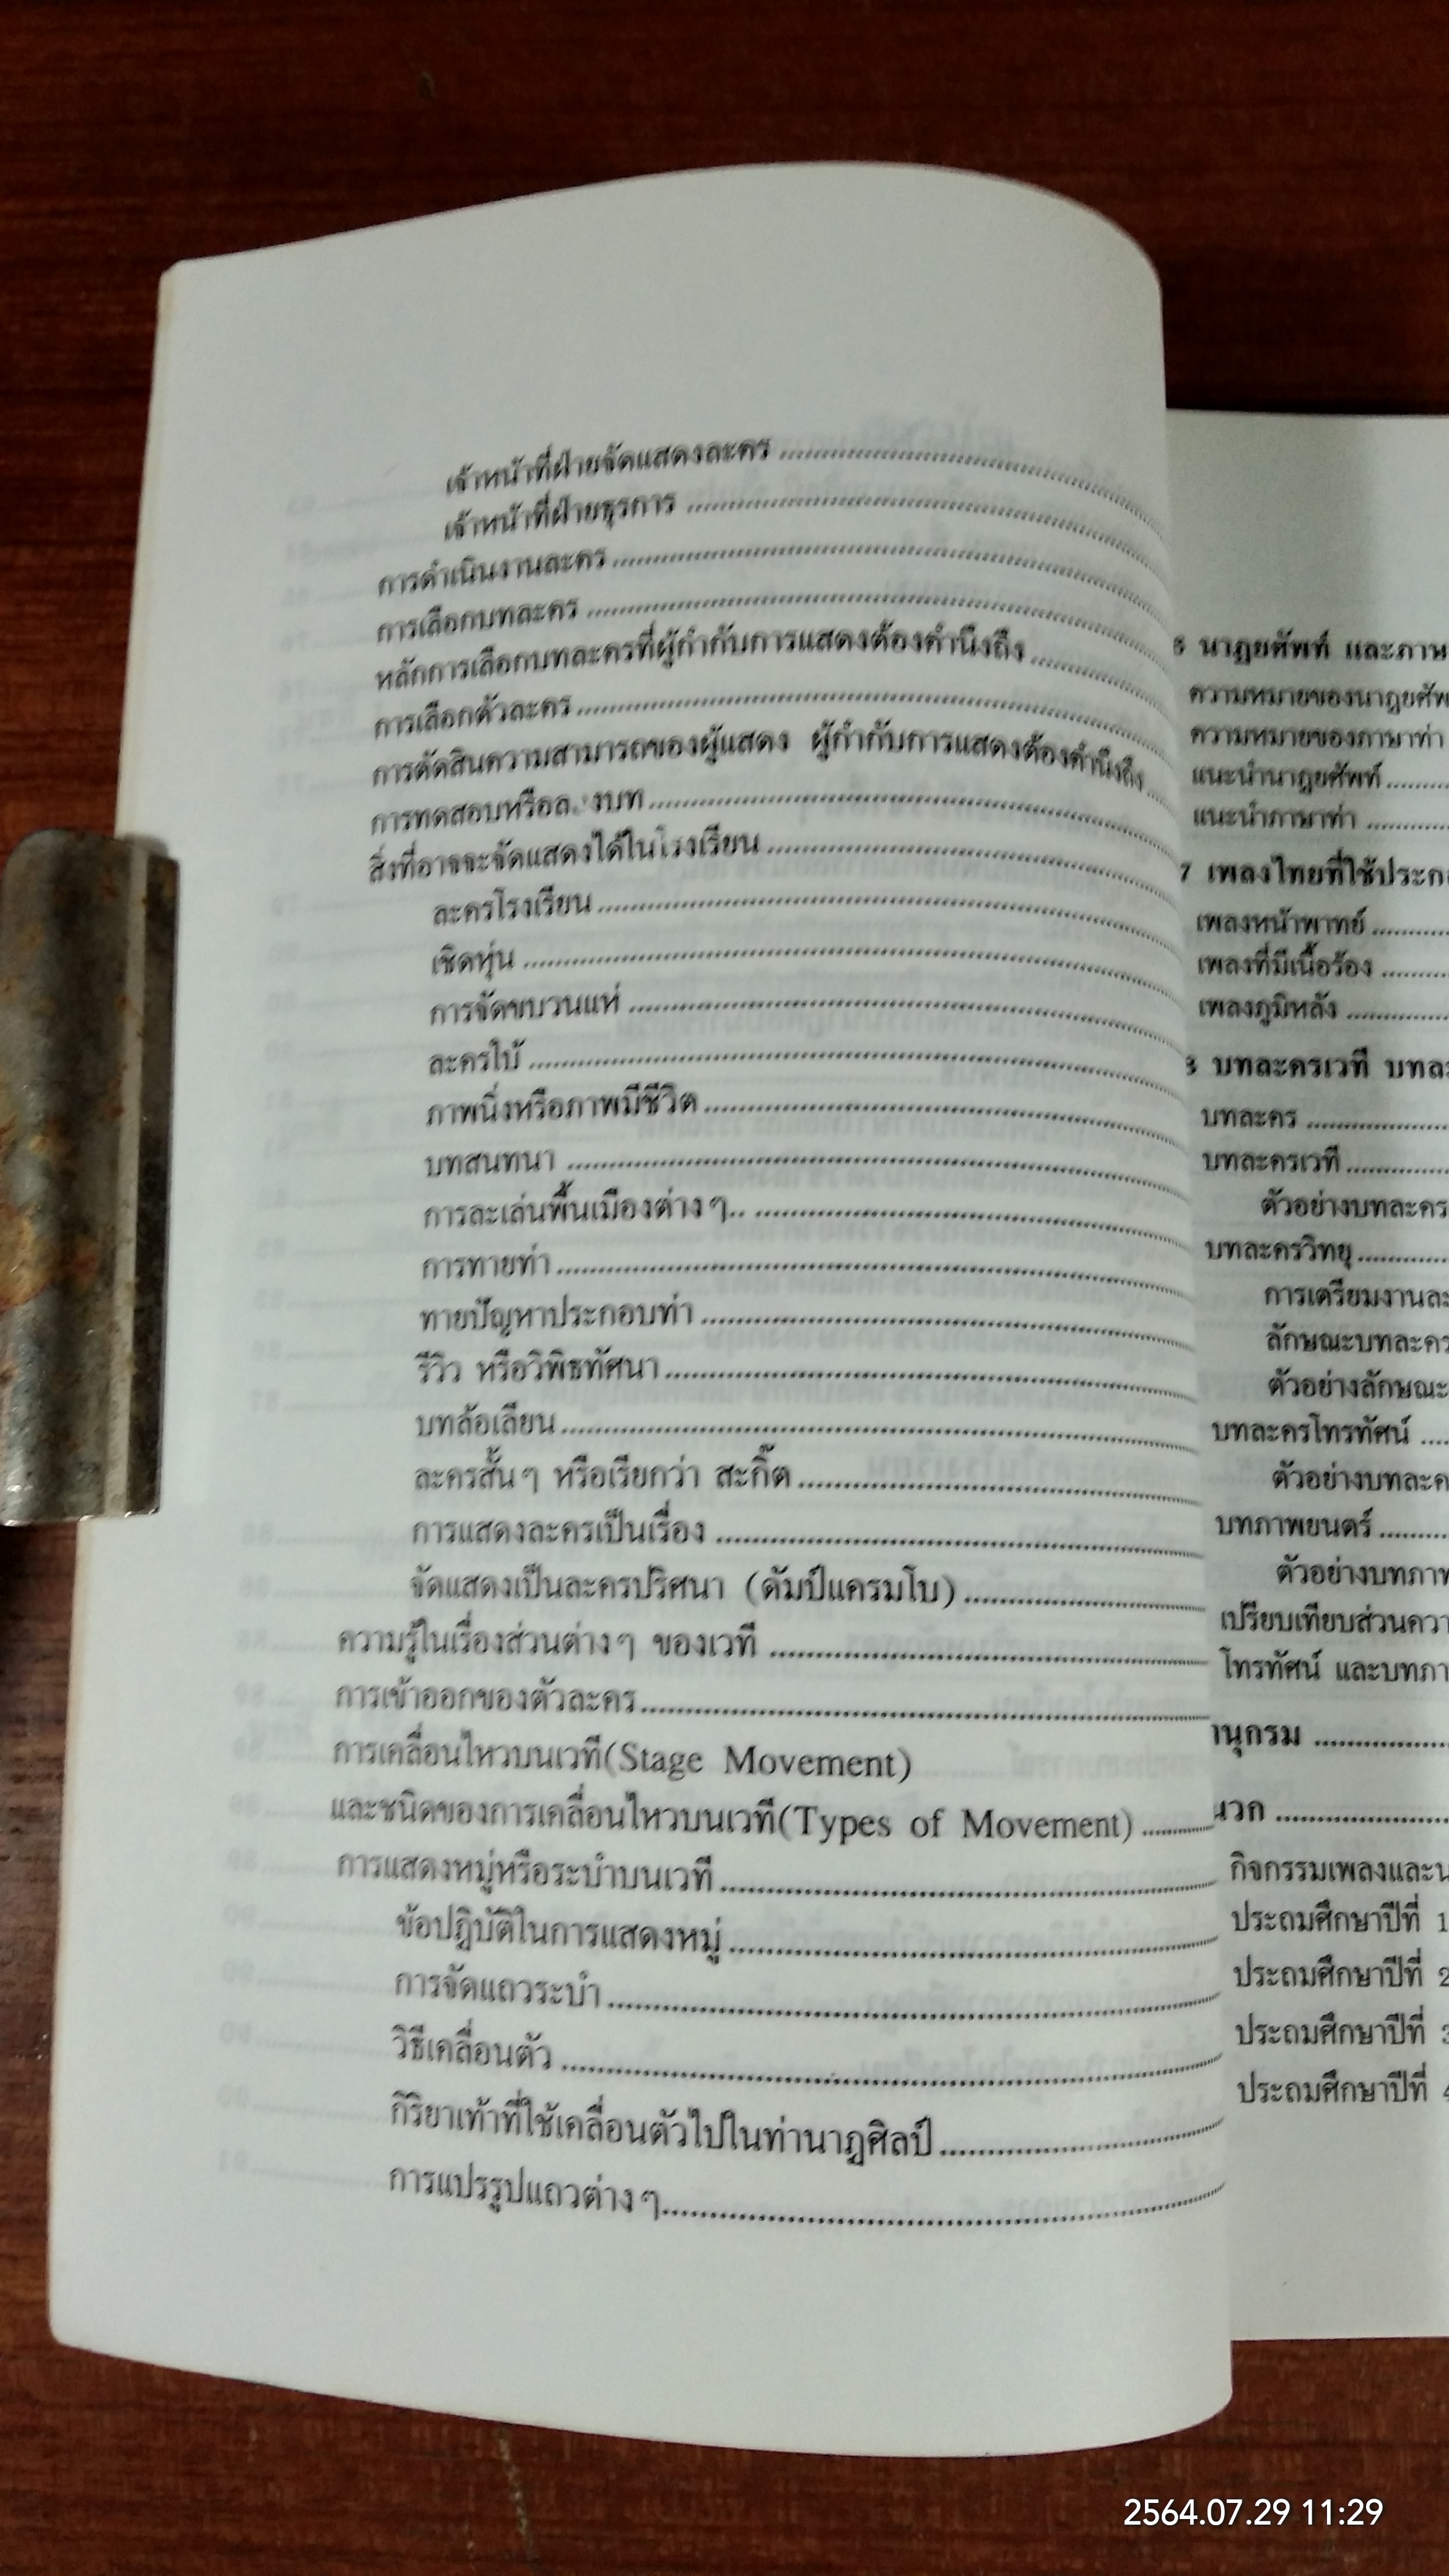 เจ้าหน้าที่ฝ่ายจัดแสดงละคร
เจ้าหน้าที่ฝ่ายธุรการ
การดำเนินงานละคร
การเลือกบทละคร
หลักการเลือกบทละครที่ผู้กำกับการแสดงต้องคำนึงถึง
การเลือกตัวละคร
การตัดสินความสามารถของผู้แสดง ผู้กำกับการแสดงต้องคำนึงถึง
การทดสอบหรือล งบท
สิ่งที่อาจจะจัดแสดงได้ในโรงเรียน
ละครโรงเรียน
เชิดหุ่น
การจัดขบวนแห่
ละครใบ้
ภาพนิ่งหรือภาพมีชีวิต
บทสนทนา
การละเล่นพื้นเมืองต่างๆ
การทายท่า
ทายปัญหาประกอบท่า
รีวิว หรือวิพิธทัศนา
บทล้อเลียน
ละครสั้นๆ หรือเรียกว่า สะกิ๊ต
การแสดงละครเป็นเรื่อง
จัดแสดงเป็นละครปริศนา (ดัมป์แครมโบ)
ความรู้ในเรื่องส่วนต่างๆ ของเวที
การเข้าออกของตัวละคร
การเคลื่อนไหวบนเวที(Stage Movement)
และชนิดของการเคลื่อนไหวบนเวที(Types of Movement)
การแสดงหมู่หรือระบำบนเวที
ข้อปฏิบัติในการแสดงหมู่
การจัดแถวระบำ
วิธีเคลื่อนตัว
กิริยาเท้าที่ใช้เคลื่อนตัวไปในท่านาฏศิลป์
การแปรรูปแถวต่างๆ
6 นาฏยศัพท์ และภาษ
ความหมายของนาฏยศัพ
ความหมายของภาษาท่า
แนะนำนาฏยศัพท์
แนะนำภาษาท่า
7 เพลงไทยที่ใช้ประกอ
เพลงหน้าพาทย์
เพลงที่มีเนื้อร้อง
เพลงภูมิหลัง
8 บทละครเวที บทละ
บทละคร
บทละครเวที
ตัวอย่างบทละคร
บทละครวิทยุ
การเตรียมงานละ
ลักษณะบทละคร
ตัวอย่างลักษณะ
บทละครโทรทัศน์
ตัวอย่างบทละค
บทภาพยนตร์
ตัวอย่างบทภาพ
เปรียบเทียบส่วนควา
โทรทัศน์ และบทภา
านุกรม
นวก
กิจกรรมเพลงและน
ประถมศึกษาปีที่ 1
ประถมศึกษาปีที่ 2
ประถมศึกษาปีที่ 3
ประถมศึกษาปีที่ 4
2564.07.29 11:29